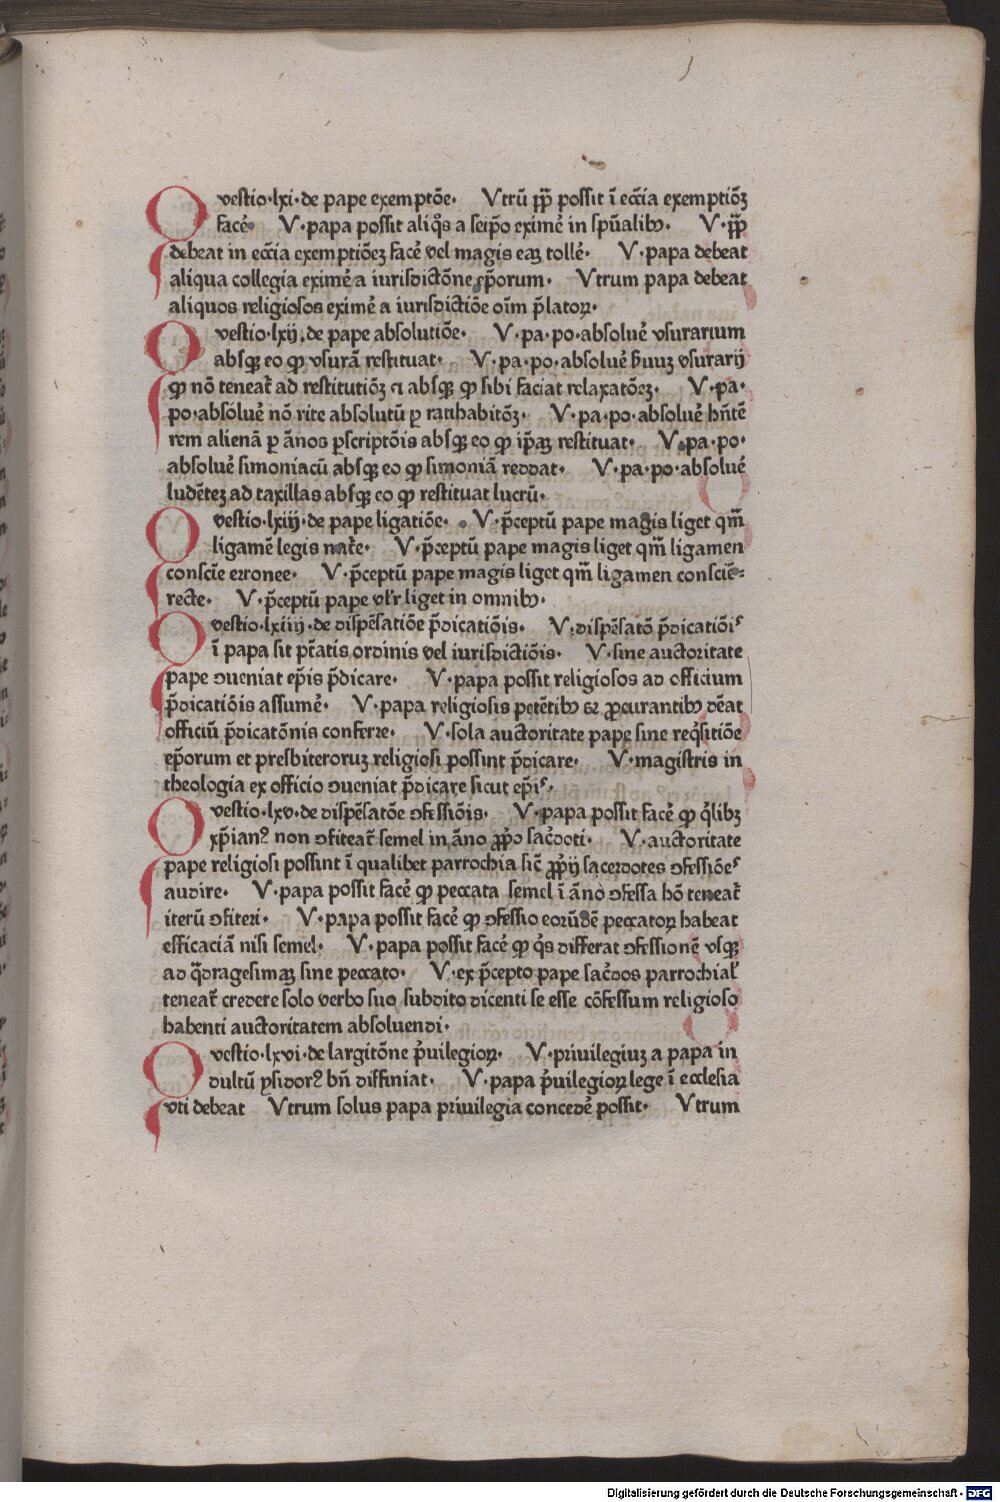 Questio·lxi·de pape exemptōe· Vtrū pp̄ possit ī eccīa exemptiōꝫ
facē· V·papa possit aliqͦs a seip̄o eximē in sp̄ualibꝫ· V·pp̄
debeat in eccīa exemptiōeꝫ facē vel magis eaꝫ tollē· V·papa debeat
aliqua collegia eximē a iurisdictōne ep̄orum· Vtrum papa debeat
aliquos religiosos eximē a iurisdictiōe oīm p̄latoꝝ·
Questio·lxij·de pape absolutiōe· V·pa·po·absoluē vsurarium
absqꝫ eo ꝙ vsurā restituat· V·pa·po·absoluē h̄uuꝫ vsurarij
ꝙ nō teneat᷑ ad restitutiōꝫ ⁊ absqꝫ ꝙ sibi faciat relaxatōeꝫ· V·pa·
po·absoluē nō rite absolutū ꝑ ratihabitōꝫ· V·pa·po·absoluē hn̄tē
rem alienā ꝑ ānos p̄scriptōis absqꝫ eo ꝙ ip̄aꝫ restituat· V·pa·po·
absoluē simoniacū absqꝫ eo ꝙ simoniā reddat· V·pa·po·absoluē
ludēteꝫ ad taxillas absqꝫ eo ꝙ restituat lucrū·
Questio·lxiij·de pape ligatiōe· V·p̄ceptū pape magis liget qm̄
ligamē legis nat᷑e· V·p̄ceptū pape magis liget qm̄ ligamen
conscīe erronee· V·p̄ceptū pape magis liget qm̄ ligamen consciē⸗
recte· V·p̄ceptū pape vl̄r liget in omnibꝫ·
Questio·lxiiij·de dispēsatiōe p̄dicatiōis· V·dispēsatō p̄dicatiōis
ī papa sit pt̄atis ordinis vel iurisdictiōis· V·sine auctoritate
pape ꝯueniat ep̄is p̄dicare· V·papa possit religiosos ad officium
p̄dicatiōis assumē· V·papa religiosis petētibꝫ ⁊ ꝓcurantibꝫ dēat
officiū p̄dicatōnis conferre· V·sola auctoritate pape sine reqͥsitiōe
ep̄orum et presbiteroruꝫ religiosi possint p̄dicare· V·magistris in
theologia ex officio ꝯueniat p̄dicare sicut ep̄is·
Questio·lxv·de dispēsatōe ꝯfessiōis· V·papa possit facē ꝙ qͥlibꝫ
xp̄ianꝰ non ꝯfiteat᷑ semel in āno ꝓp̄o sac̄doti· V·auctoritate
pape religiosi possint ī qualibet parrochia sic̄ ꝓp̄ij sacerdotes ꝯfessiōes
audire· V·papa possit facē ꝙ peccata semel ī āno ꝯfessa hō teneat᷑
iterū ꝯfiteri· V·papa possit facē ꝙ ꝯfessio eorūdē peccatoꝝ habeat
efficaciā nisi semel· V·papa possit facē ꝙ qͥs differat ꝯfessionē vsqꝫ
ad q̄dragesimaꝫ sine peccato· V·ex p̄cepto pape sac̄dos parrochial̄
teneat᷑ credere solo verbo suo subdito dicenti se esse cōfessum religioso
habenti auctoritatem absoluendi·
Questio·lxvi·de largitōne p̄uilegioꝝ· V·priuilegiuꝫ a papa in
dultū ysidorꝰ bn̄ diffiniat· V·papa p̄uilegioꝝ lege ī ecclesia
vti debeat Vtrum solus papa priuilegia concedē possit· Vtrum
Digitalisierung gefördert durch die Deutsche Forschungsgemeinschaft - DFG